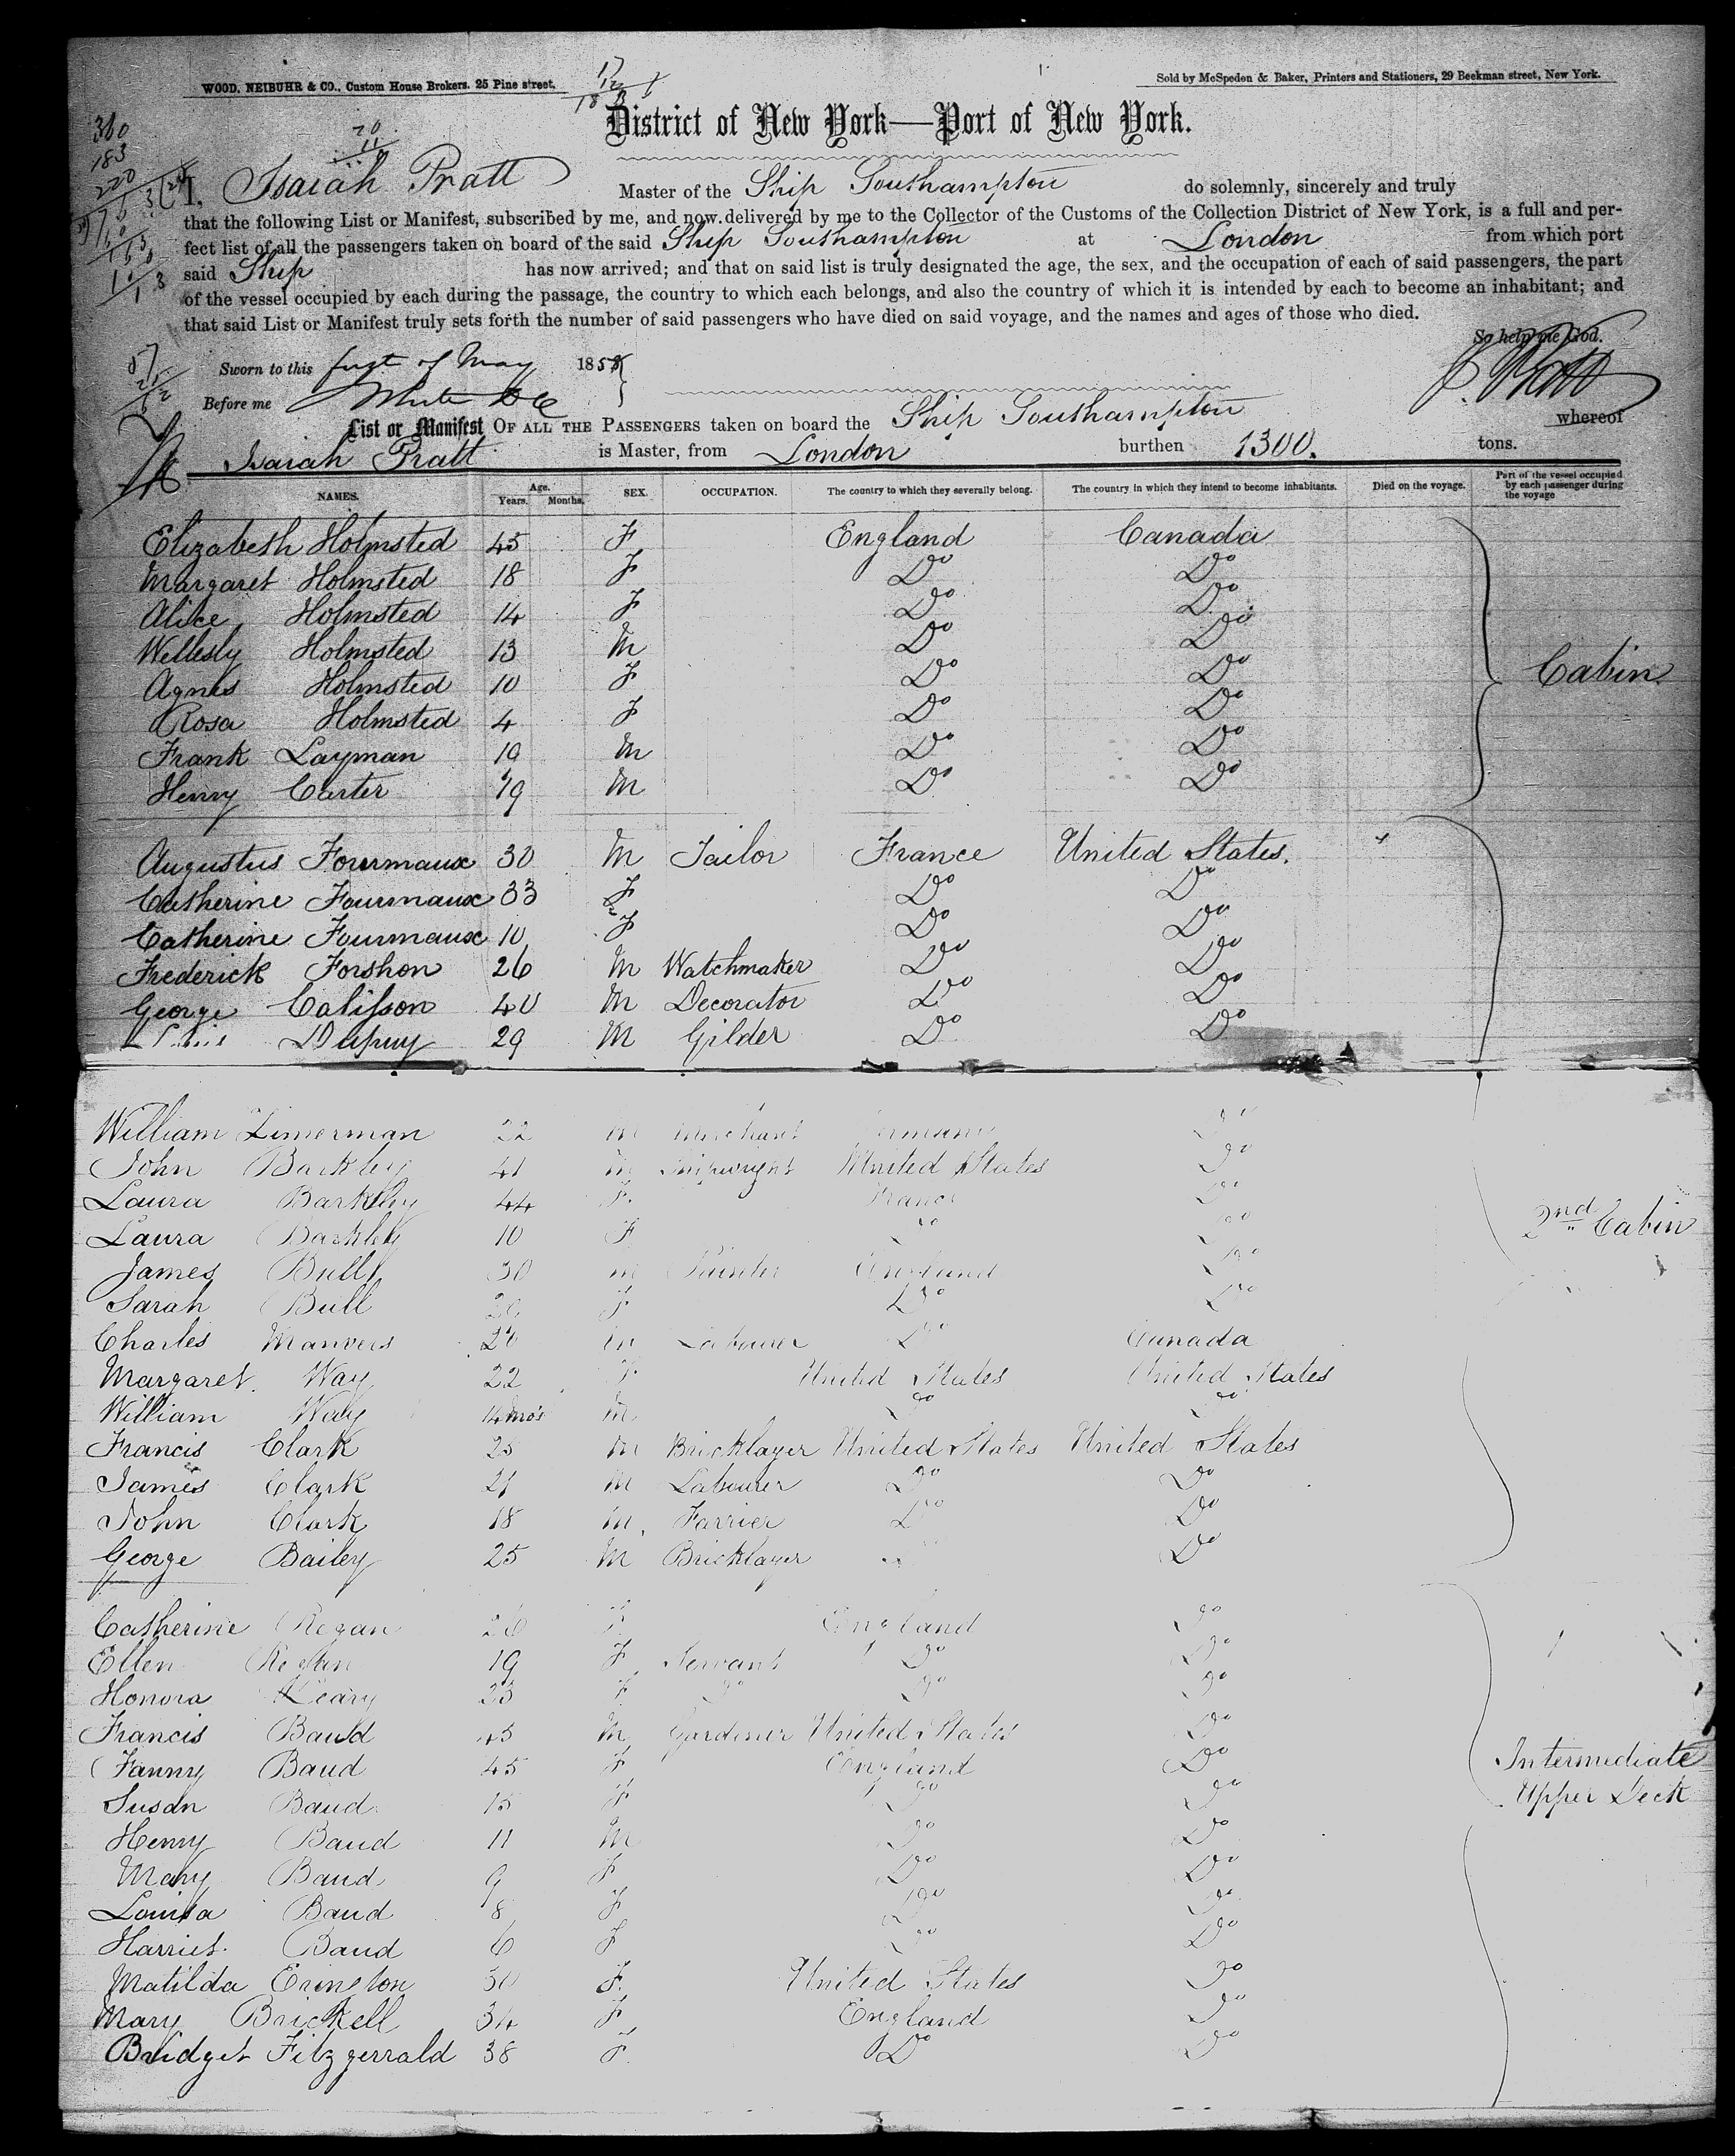 WOOD, NEIBUHR & CO., Custom House Brokers. 25 Pine street,
Sold by McSpedon & Baker, Printers and Stationers, 29 Beekman street, New York.
District of New York—Port of New York.
I, Isaiah Pratt Master of the Ship Southampton do solemnly, sincerely and truly
that the following List or Manifest, subscribed by me, and now delivered by me to the Collector of the Customs of the Collection District of New York, is a full and per-
fect list of all the passengers taken on board of the said Ship Southampton at London from which port
said Ship has now arrived; and that on said list is truly designated the age, the sex, and the occupation of each of said passengers, the part
of the vessel occupied by each during the passage, the country to which each belongs, and also the country of which it is intended by each to become an inhabitant; and
that said List or Manifest truly sets forth the number of said passengers who have died on said voyage, and the names and ages of those who died.
So help me God.
Sworn to this first of May 185
Before me White
List or Manifest OF ALL THE PASSENGERS taken on board the Ship Southampton whereof
Isaiah Pratt is Master, from London burthen 1300. tons.
NAMES. Age. Years. Months. SEX. OCCUPATION. The country to which they severally belong. The country in which they intend to become inhabitants. Died on the voyage. Part of the vessel occupied by each passenger during the voyage
Elizabeth Holmsted 45 F England Canada
Margaret Holmsted 18 F Do Do
Alice Holmsted 14 F Do Do
Wellesly Holmsted 13 M Do Do
Agnes Holmsted 10 F Do Do Cabin
Rosa Holmsted 4 F Do Do
Frank Layman 19 M Do Do
Henry Carter 19 M Do Do
Augustus Fourmaux 30 M Tailor France United States.
Catherine Fourmaux 33 F Do Do
Catherine Fourmaux 10 F Do Do
Frederick Forshon 26 M Watchmaker Do Do
George Calisson 40 M Decorator Do Do
Dupuy 29 M Gilder Do Do
William Zimerman 22 M Do
John Barkley 41 M United States Do
Laura Barkley 44 F. France Do
Laura Barkley 10 F Do Do 2nd Cabin
James Bull 30 M England Do
Sarah Bull F Do Do
Charles Manvers M Labourer Do Canada
Margaret Way 22 F United States United States
William Way 14 mo's M Do Do
Francis Clark 25 M Bricklayer United States United States
James Clark 21 M Labourer Do Do
John Clark 18 M. Farrier Do Do
George Bailey 25 M Bricklayer Do
Catherine Regan 26 F England Do
Ellen 19 F Servant Do Do
Honora Leary 23 F Do Do Do
Francis Baud 45 M Gardener United States Do
Fanny Baud 45 F England Do Intermediate
Susan Baud 15 F Do Do Upper Deck
Henry Baud 11 M Do Do
Mary Baud 9 F Do Do
Louisa Baud 8 F Do Do
Harriet Baud 6 F Do Do
Matilda Erington 30 F. United States Do
Mary Brickell 34 F England Do
Bridget Fitzgerrald 38 F. Do Do